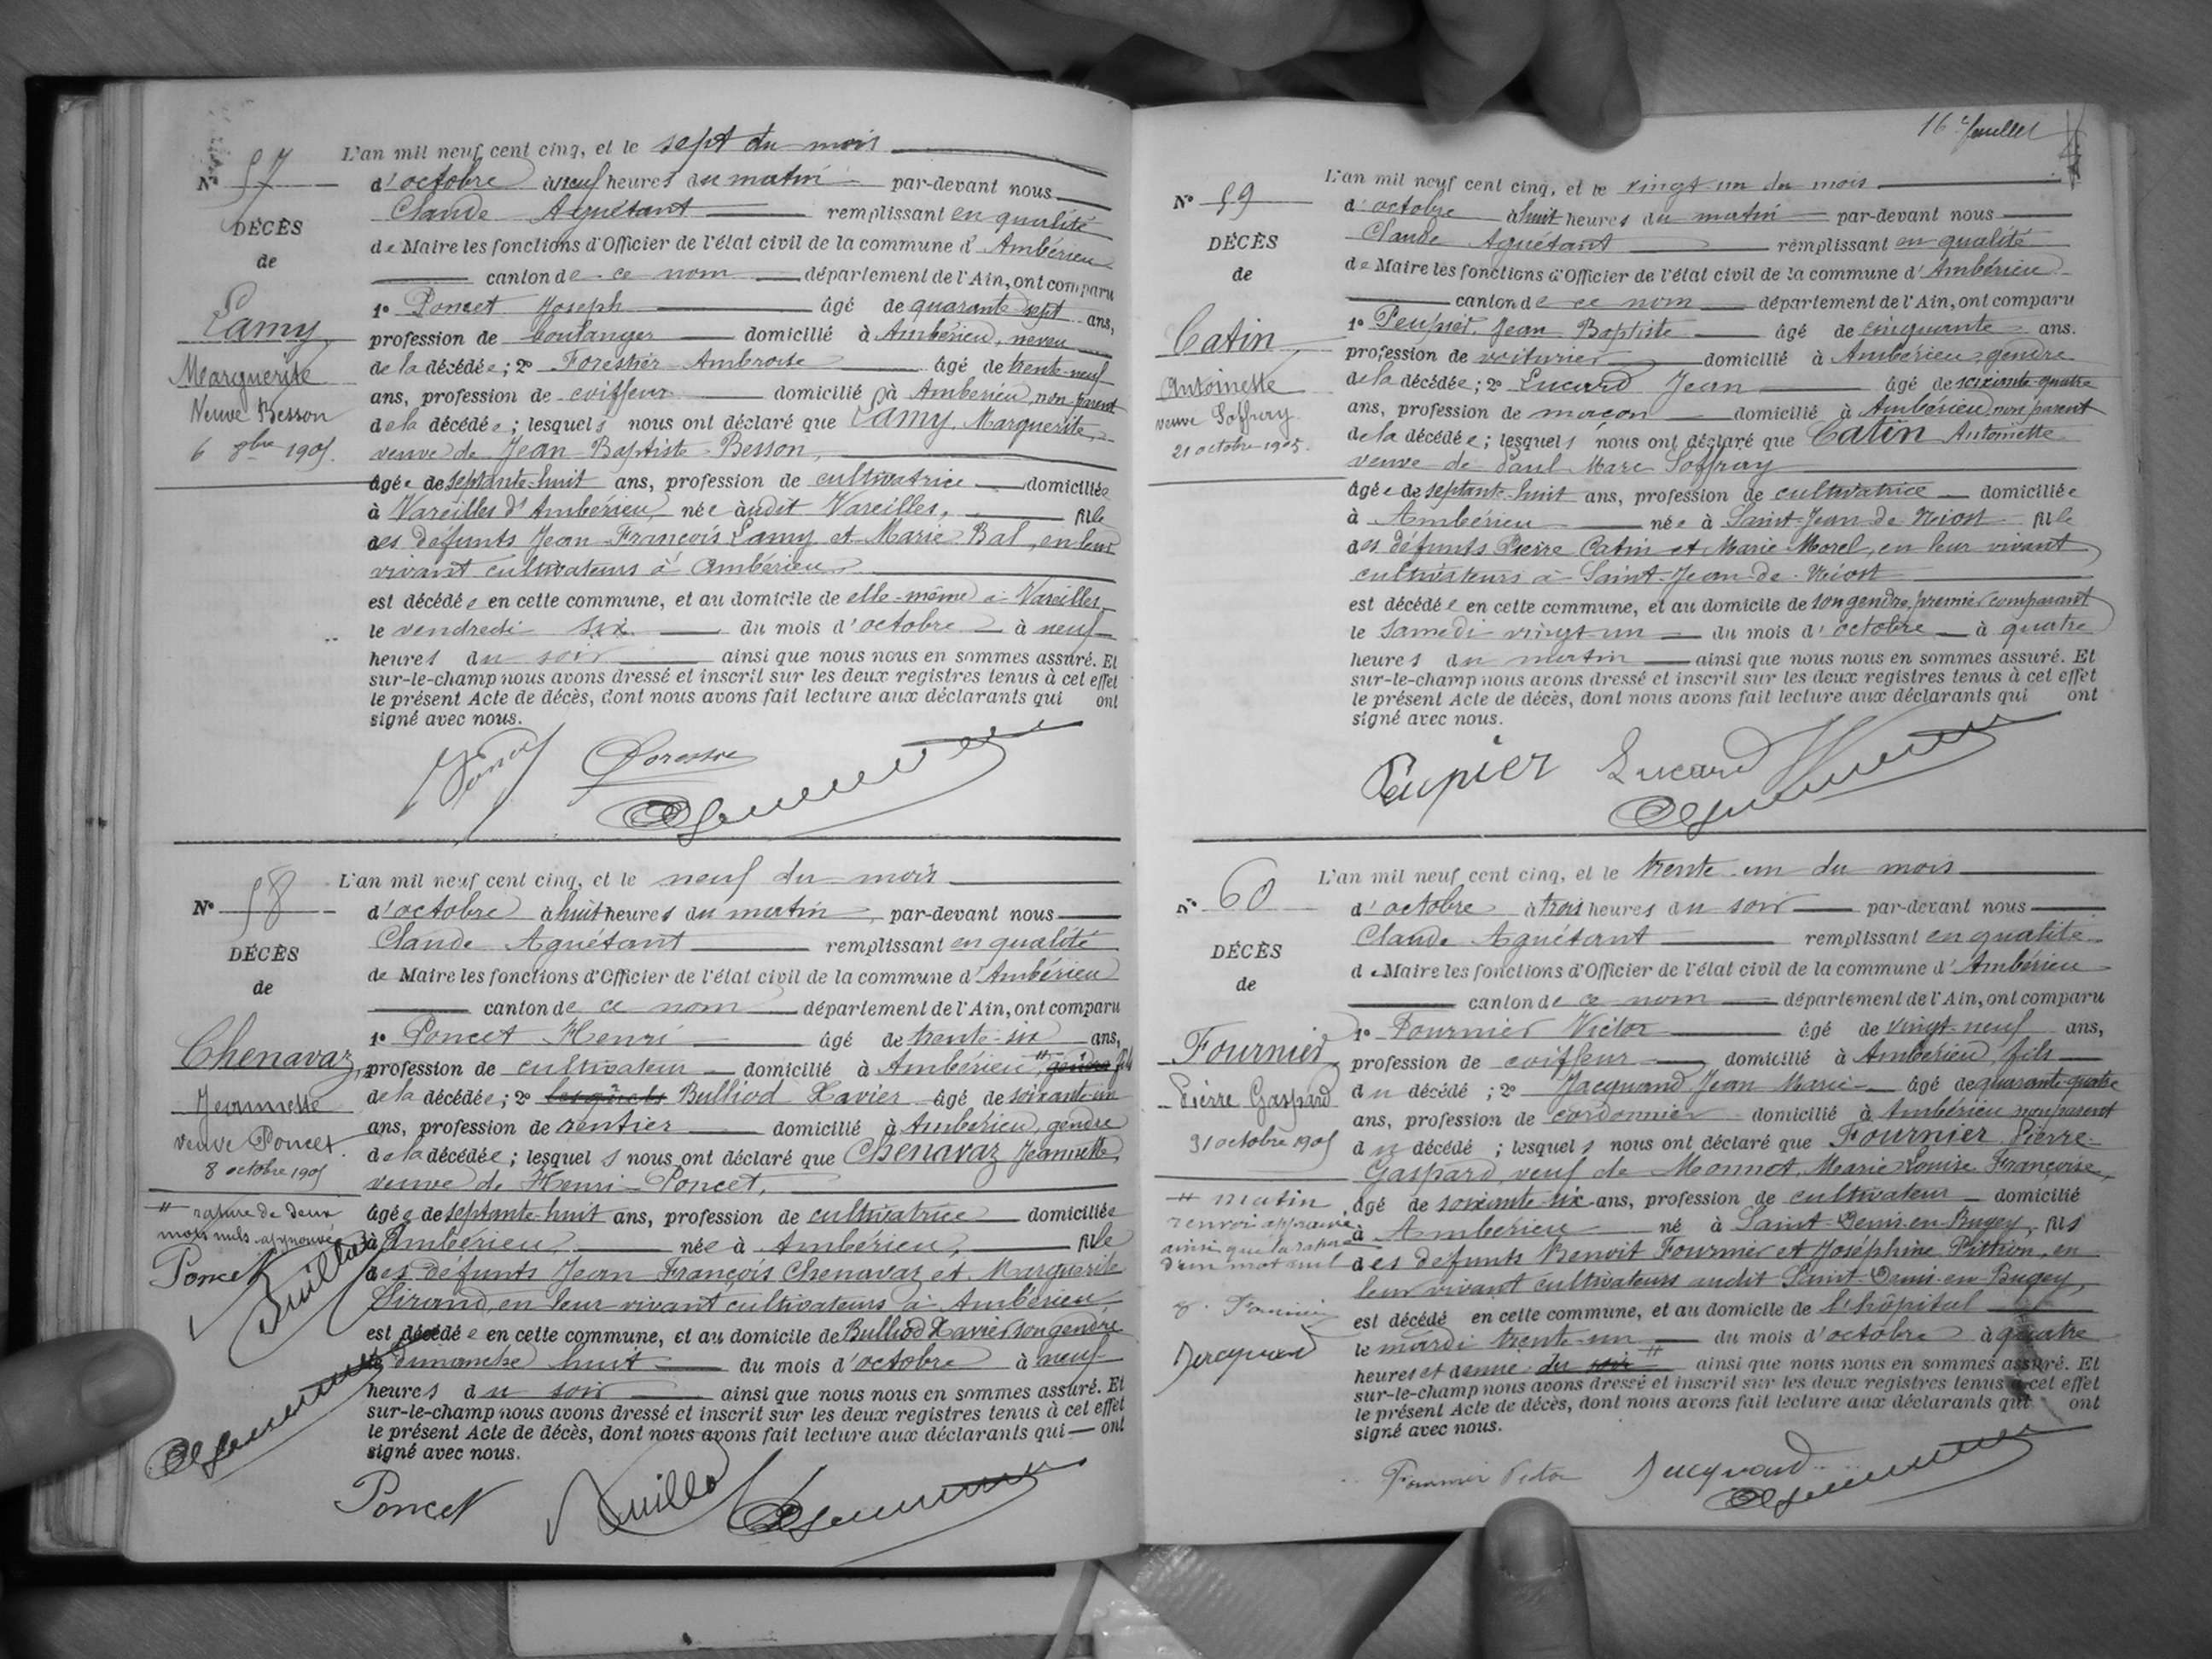 N° 57
DÉCÈS
de
Lamy
Marguerite
Veuve Besson
6 8bre 1905.
L'an mil neuf cent cinq, et le sept du mois
d'octobre à neuf heures du matin par-devant nous
Claude Aguétant remplissant en qualité
de Maire les fonctions d'Officier de l'état civil de la commune d'Ambérieu
canton de ce nom département de l'Ain, ont comparu
1° Poncet Joseph âgé de quarante-sept ans,
profession de boulanger domicilié à Ambérieu, neveu
de la décédée; 2° Forestier Ambroise âgé de trente-neuf
ans, profession de coiffeur domicilié à Ambérieu, non parent
de la décédée; lesquels nous ont déclaré que Lamy Marguerite,
veuve de Jean-Baptiste Besson,
âgée de septante-huit ans, profession de cultivatrice domiciliée
à Vareilles d'Ambérieu, née audit Vareilles, fille
des défunts Jean-François Lamy et Marie Bal, en leur
vivant cultivateurs à Ambérieu
est décédée en cette commune, et au domicile de elle-même à Vareilles,
le vendredi six du mois d'octobre à neuf
heures du soir ainsi que nous nous en sommes assuré. Et
sur-le-champ nous avons dressé et inscrit sur les deux registres tenus à cet effet
le présent Acte de décès, dont nous avons fait lecture aux déclarants qui ont
signé avec nous.
N° 58
DÉCÈS
de
Chenavaz,
Jeannette
veuve Poncet.
8 octobre 1905
rature de deux
mots nuls approuvé
Poncet
L'an mil neuf cent cinq, et le neuf du mois
d'octobre à huit heures du matin par-devant nous
Claude Aguétant remplissant en qualité
de Maire les fonctions d'Officier de l'état civil de la commune d'Ambérieu
canton de ce nom département de l'Ain, ont comparu
1° Poncet Henri âgé de trente-six ans,
profession de cultivateur domicilié à Ambérieu, gendre fils
de la décédée; 2° lesquels Bulliod Xavier âgé de soixante-un
ans, profession de rentier domicilié à Ambérieu, gendre
de la décédée; lesquels nous ont déclaré que Chenavaz Jeannette,
veuve de Henri Poncet,
âgée de septante-huit ans, profession de cultivatrice domiciliée
à Ambérieu, née à Ambérieu, fille
des défunts Jean François Chenavaz et Marguerite
Sirand, en leur vivant cultivateurs à Ambérieu
est décédée en cette commune, et au domicile de Bulliod Xavier son gendre
le dimanche huit du mois d'octobre à neuf
heures du soir ainsi que nous nous en sommes assuré. Et
sur-le-champ nous avons dressé et inscrit sur les deux registres tenus à cet effet
le présent Acte de décès, dont nous avons fait lecture aux déclarants qui ont
signé avec nous.
Poncet
16e feuillet
N° 59
DÉCÈS
de
Catin
Antoinette
veuve Soffray
21 octobre 1905.
L'an mil neuf cent cinq, et le vingt-un du mois
d'octobre à huit heures du matin par-devant nous
Claude Aguétant remplissant en qualité
de Maire les fonctions d'Officier de l'état civil de la commune d'Ambérieu
canton de ce nom département de l'Ain, ont comparu
1° Peupier Jean Baptiste âgé de cinquante ans.
profession de voiturier domicilié à Ambérieu, gendre
de la décédée; 2° Lucard Jean âgé de soixante-quatre
ans, profession de maçon domicilié à Ambérieu, non parent
de la décédée; lesquels nous ont déclaré que Catin Antoinette
veuve de Paul Marc Soffray
âgée de septante-huit ans, profession de cultivatrice domiciliée
à Ambérieu née à Saint-Jean-de-Niost fille
des défunts Pierre Catin et Marie Morel, en leur vivant
cultivateurs à Saint-Jean-de-Niost
est décédée en cette commune, et au domicile de son gendre, premier comparant
le samedi vingt-un du mois d'octobre à quatre
heures du matin ainsi que nous nous en sommes assuré. Et
sur-le-champ nous avons dressé et inscrit sur les deux registres tenus à cet effet
le présent Acte de décès, dont nous avons fait lecture aux déclarants qui ont
signé avec nous.
Peupier Lucard
N° 60
DÉCÈS
de
Fournier
Pierre Gaspard
31 octobre 1905
matin
renvoi approuvé
ainsi que la rature
d'un mot nul
Jacquand
L'an mil neuf cent cinq, et le trente-un du mois
d'octobre à trois heures du soir par-devant nous
Claude Aguétant remplissant en qualité
de Maire les fonctions d'Officier de l'état civil de la commune d'Ambérieu
canton de ce nom département de l'Ain, ont comparu
1° Fournier Victor âgé de vingt-neuf ans,
profession de coiffeur domicilié à Ambérieu, fils
du décédé; 2° Jacquand Jean Marie âgé de quarante-quatre
ans, profession de cordonnier domicilié à Ambérieu non parent
du décédé; lesquels nous ont déclaré que Fournier Pierre-
Gaspard, veuf de Monnot, Marie Louise Françoise,
âgé de soixante-six ans, profession de cultivateur domicilié
à Ambérieu né à Saint-Denis-en-Bugey, fils
des défunts Benoit Fournier et Joséphine Pittion, en
leur vivant cultivateurs audit Saint-Denis-en-Bugey,
est décédé en cette commune, et au domicile de l'hôpital
le mardi trente-un du mois d'octobre à quatre
heures et demie du soir ainsi que nous nous en sommes assuré. Et
sur-le-champ nous avons dressé et inscrit sur les deux registres tenus à cet effet
le présent Acte de décès, dont nous avons fait lecture aux déclarants qui ont
signé avec nous.
Fournier Victor Jacquand